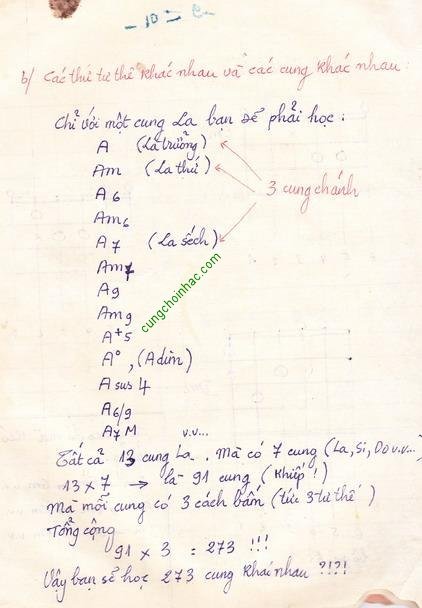 - 10 -
b/ Các thứ tư thế khác nhau và các cung khác nhau :
Chỉ với một cung La bạn sẽ phải học :
A (La trưởng)
Am (La thứ)
A6
Am6
A7 (La sếch)
Am7
A9
Am9
A+5
A° , (A dim)
A sus 4
A6/9
A7M v.v...
3 cung chánh
cungchoinhac.com
Tất cả 13 cung La . Mà có 7 cung (La, Si, Do v.v...
13 x 7 → là 91 cung (Khiếp !)
Mà mỗi cung có 3 cách bấm (tức 3 tư thế )
Tổng cộng
91 x 3 = 273 !!!
Vậy bạn sẽ học 273 cung khác nhau ?!?!